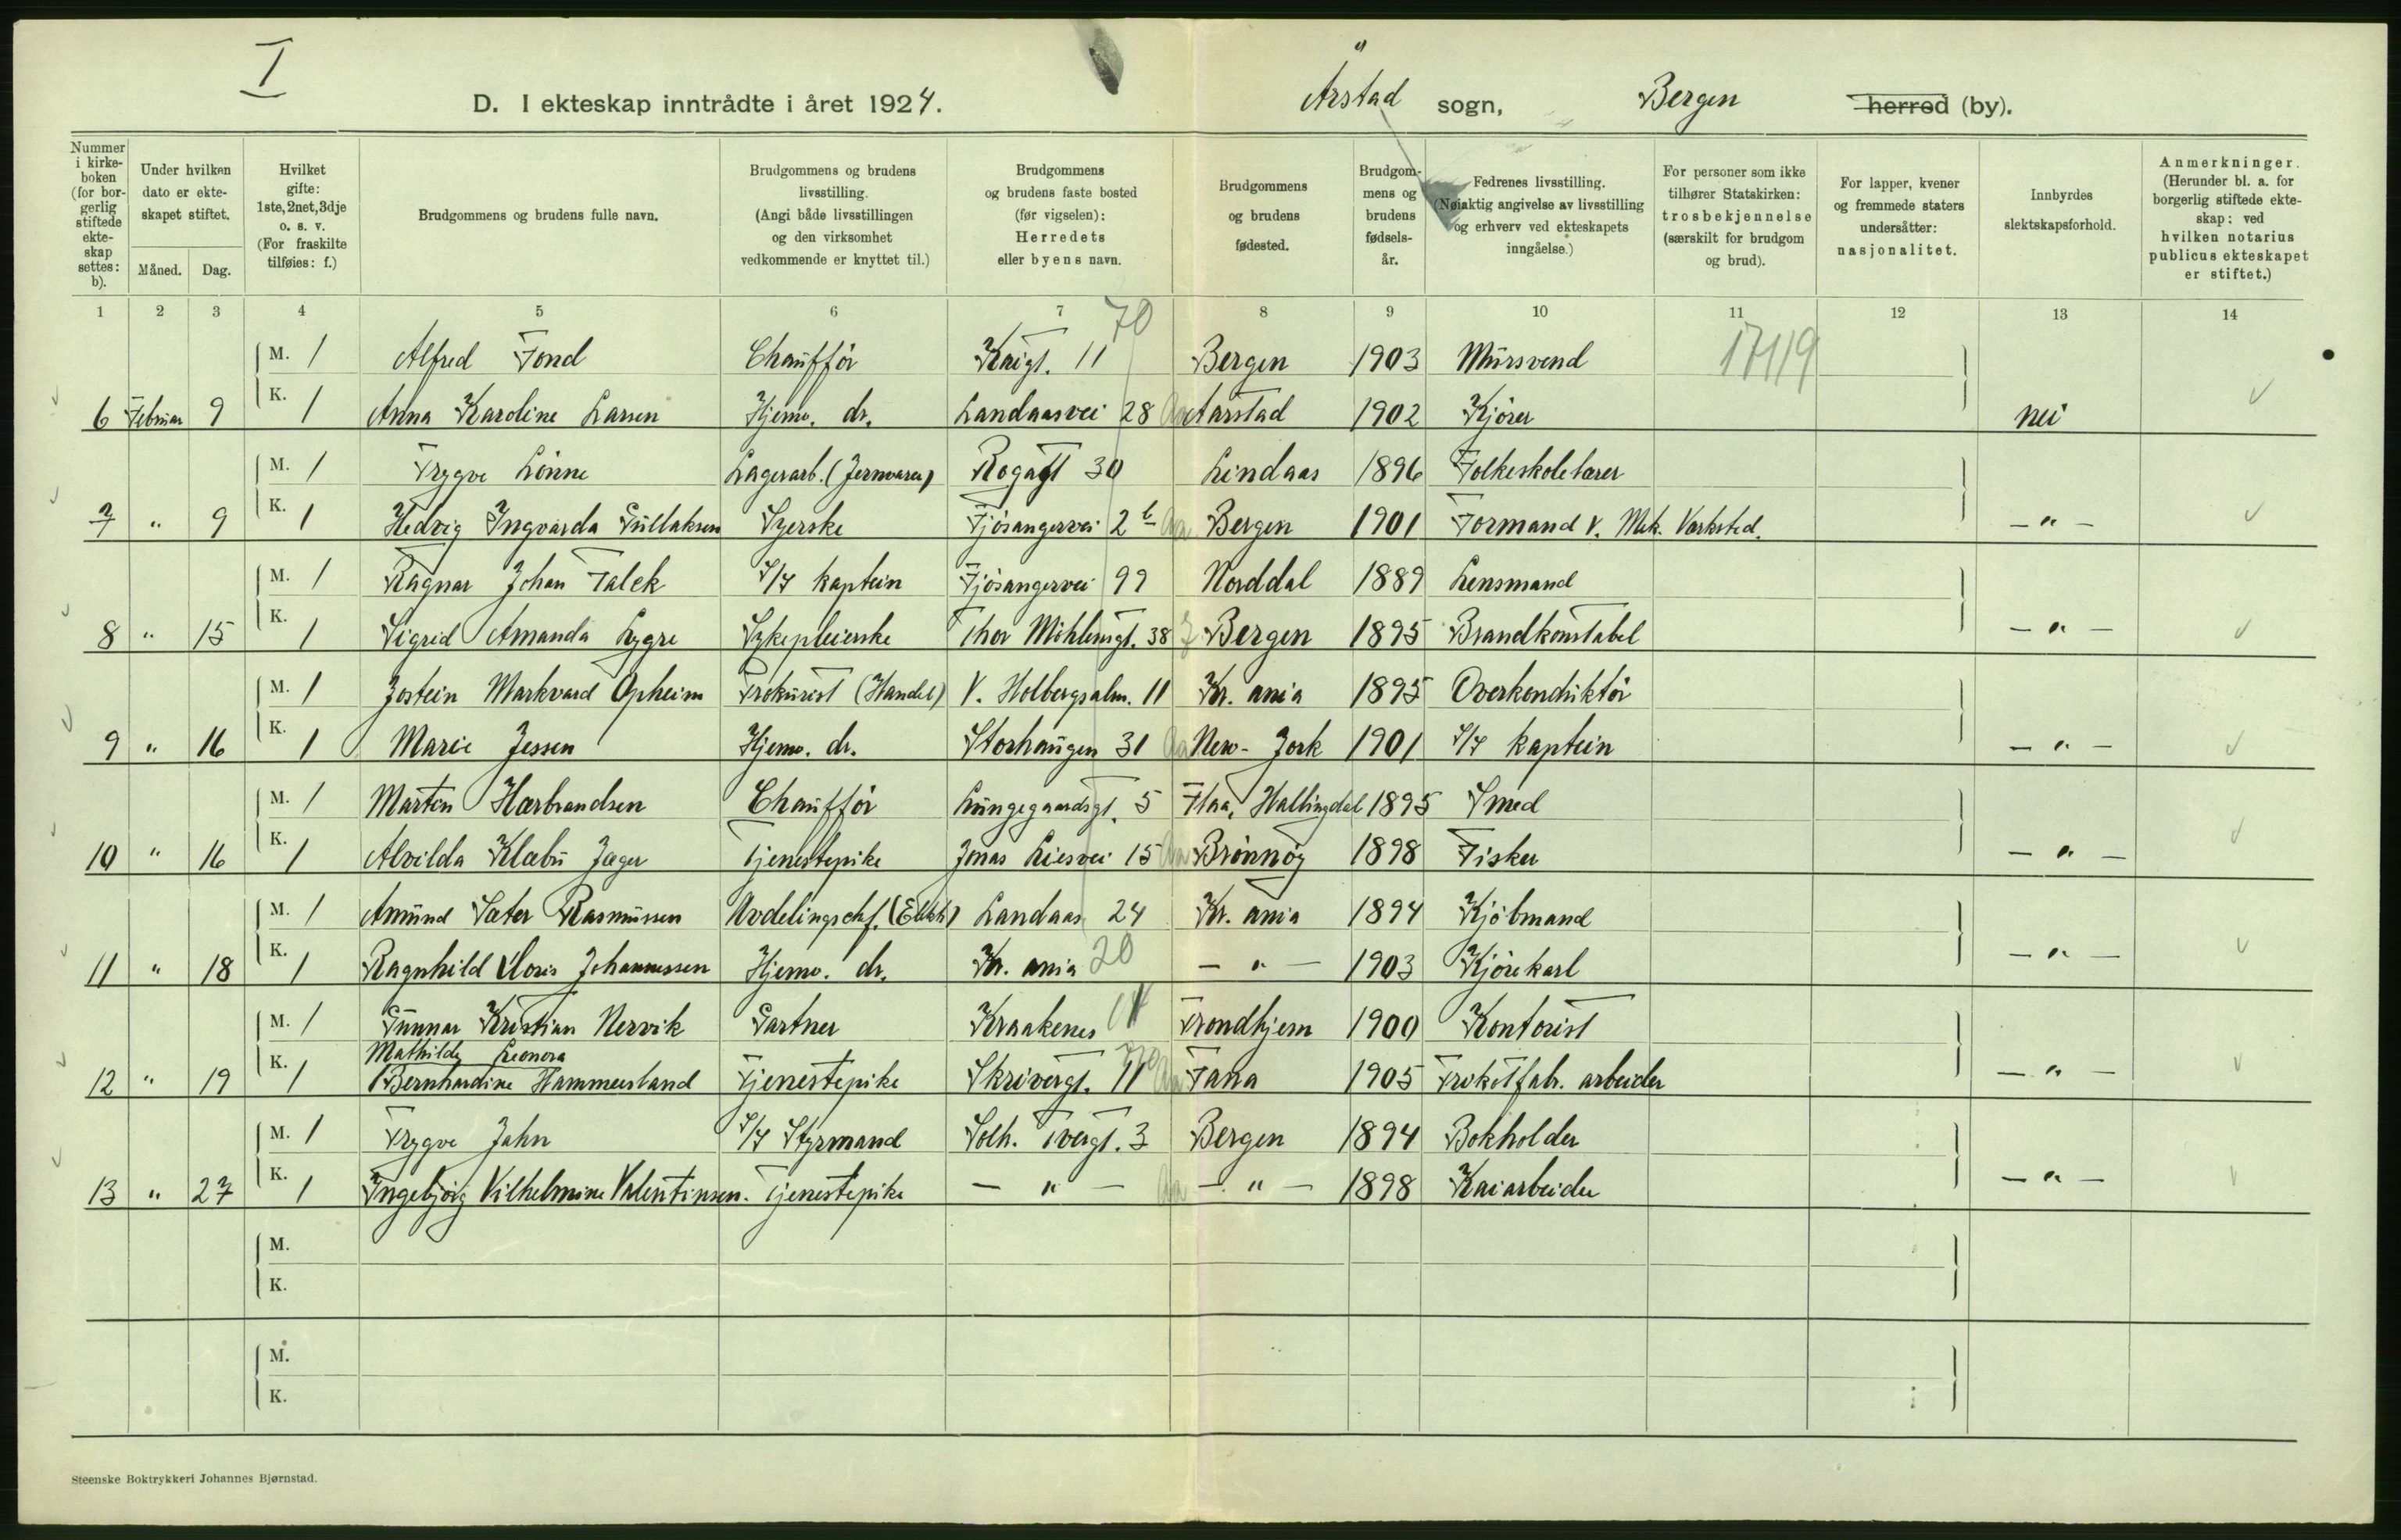 I
D. I ekteskap inntrådte i året 1924. Årstad sogn, Bergen herred (by).
Nummer i kirke-boken (for bor-gerlig stiftede ekte-skap settes: b).
Under hvilken dato er ekte-skapet stiftet.
Måned. Dag.
Hvilket gifte: 1ste, 2net, 3dje o. s. v. (For fraskilte tilføies: f.)
Brudgommens og brudens fulle navn.
Brudgommens og brudens livsstilling. (Angi både livsstillingen og den virksomhet vedkommende er knyttet til.)
Brudgommens og brudens faste bosted (før vigselen): Herredets eller byens navn.
Brudgommens og brudens fødested.
Brudgom-mens og brudens fødsels-år.
Fedrenes livsstilling. (Nøiaktig angivelse av livsstilling og erhverv ved ekteskapets inngåelse.)
For personer som ikke tilhører Statskirken: trosbekjennelse (særskilt for brudgom og brud).
For lapper, kvener og fremmede staters undersåtter: nasjonalitet.
Innbyrdes slektskapsforhold.
Anmerkninger. (Herunder bl. a. for borgerlig stiftede ekte-skap: ved hvilken notarius publicus ekteskapet er stiftet.)
1 2 3 4 5 6 7 8 9 10 11 12 13 14
70
M. 1 Alfred Tond Chaufför Kaigt. 11 Bergen 1903 Mursvend 17119
6 Februar 9 K. 1 Anna Karoline Larsen Hjemv. dr. Landaasvei 28 Aa Aarstad 1902 Kjörer nei
M. 1 Trygve Lönne Lagerarb. (Jernvarer) Rogagt 30 Lindaas 1896 Folkeskolelærer
7 " 9 K. 1 Hedvig Ingvarda Gullaksen Syerske Fjösangervei 2 b Aa Bergen 1901 Formand v. Mek. Værksted. - " -
M. 1 Ragnar Johan Falck S/S kaptein Fjösangervei 99 Norddal 1889 Lensmand
8 " 15 K. 1 Sigrid Amanda Lygre Sykepleierske Thor Möhlensgt. 38 J Bergen 1895 Brandkonstabel - " -
M. 1 Jostein Markvard Opheim Prokurist (Handel) V. Holbergsalm. 11 Kr. ania 1895 Overkonduktör
9 " 16 K. 1 Marie Jessen Hjemv. dr. Storhaugen 31 Aa New-Jork 1901 S/S kaptein - " -
M. 1 Martin Hærbrandsen Chaufför Lungegaardsgt. 5 Flaa, Hallingdal 1895 Smed
10 " 16 K. 1 Alvilda Klæbu Jæger Tjenestepike Jonas Liesvei 15 Aa Brönnöy 1898 Fisker - " -
M. 1 Amund Sæter Rasmussen Avdelingschf. (Elektr) Landaas 24 Kr. ania 1894 Kjöbmand
11 " 18 K. 1 Ragnhild Doris Johannessen Hjemv. dr. Kr. ania 20 - " - 1903 Kjörekarl - " -
M. 1 Gunnar Kristian Nervik Gartner Kraakenes Trondhjem 1900 Kontorist
Mathilde Leonora
12 " 19 K. 1 Bernhardine Hammersland Tjenestepike Skrivergt. 11 Aa Fana 1905 Trikotfabr. arbeider - " -
M. 1 Trygve Jahn S/S Styrmand Solh. Tvergt. 3 Bergen 1894 Bokholder
13 " 27 K. 1 Ingebjörg Vilhelmine Valentinsen. Tjenestepike - " - Aa - " - 1898 Kaiarbeider - " -
M.
K.
M.
K.
Steenske Boktrykkeri Johannes Bjørnstad.